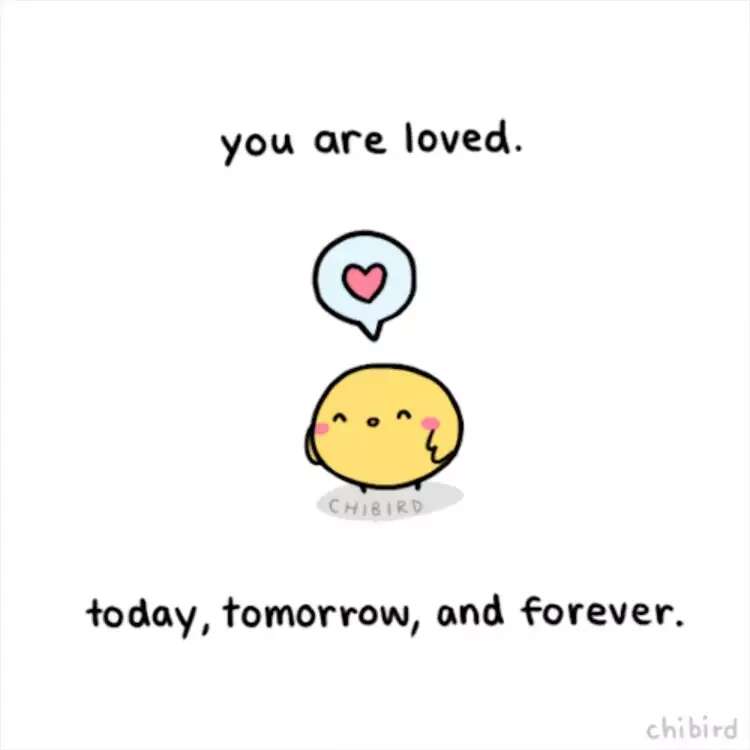 you are loved.
CHIBIRD
today, tomorrow, and forever.
chibird